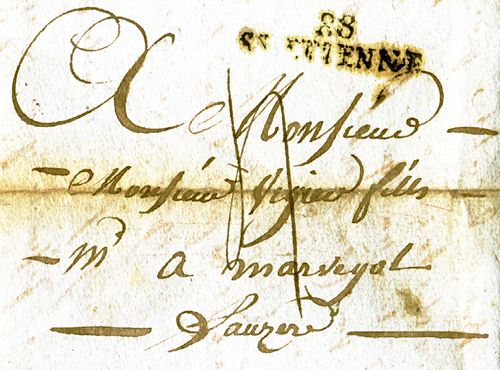 88
ST ETIENNE
A Monsieur
Monsieur fils
Md a marvejol
Lauzere